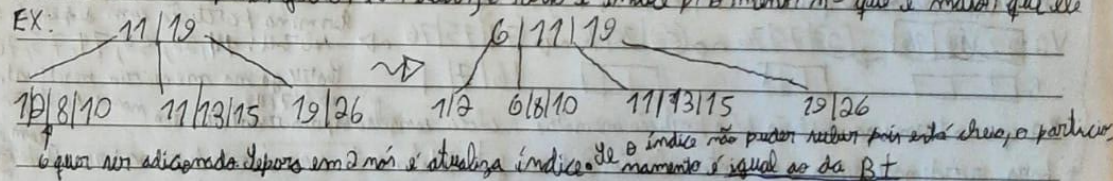 EX: 11|19 6|11|19
1|2|8|10 11|13|15 19|26 1|2 6|8|10 11|13|15 19|26
6 quer ser adicionado separa em 2 nós e atualiza índice. Se o índice não puder receber pois está cheio, o particio
namento é igual ao da B+